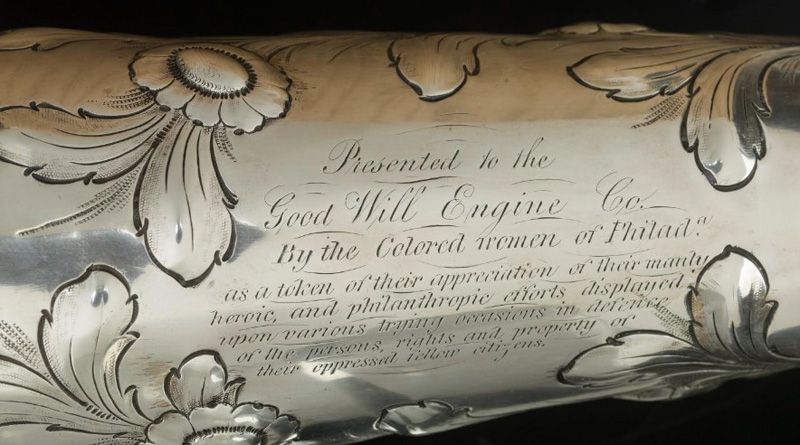 Presented to the
Good Will Engine Co.
By the Colored women of Philadᵃ
as a token of their appreciation of their manly
heroic, and philanthropic efforts displayed
upon various trying occasions in defence
of the persons, rights and property of
their oppressed fellow citizens.